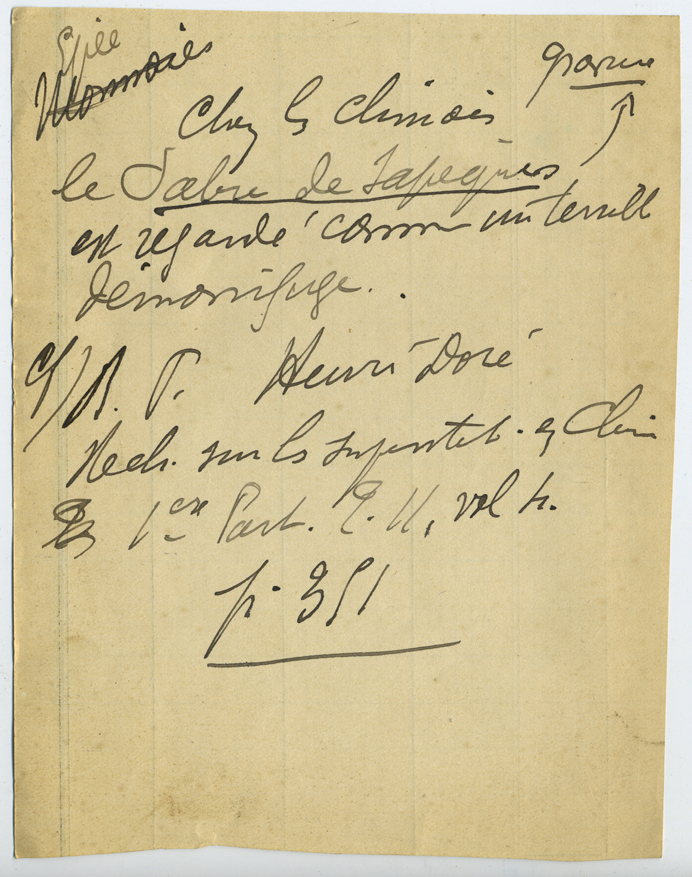 Epée
Monnaies
gravure
Chez les chinois
le Sabre de Sapeques
est regardé comme un terrible
démonifuge.
cf/ R. P. Henri Doré
Rech. sur les superstit. en Chine
1ere Part. T. II, vol
p. 351